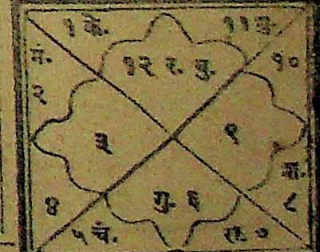 १ के.
११ शु.
मं.
१२ र. बु.
१०
२
३
९
श.
४
गु. ६
८
५ चं.
रा. ७